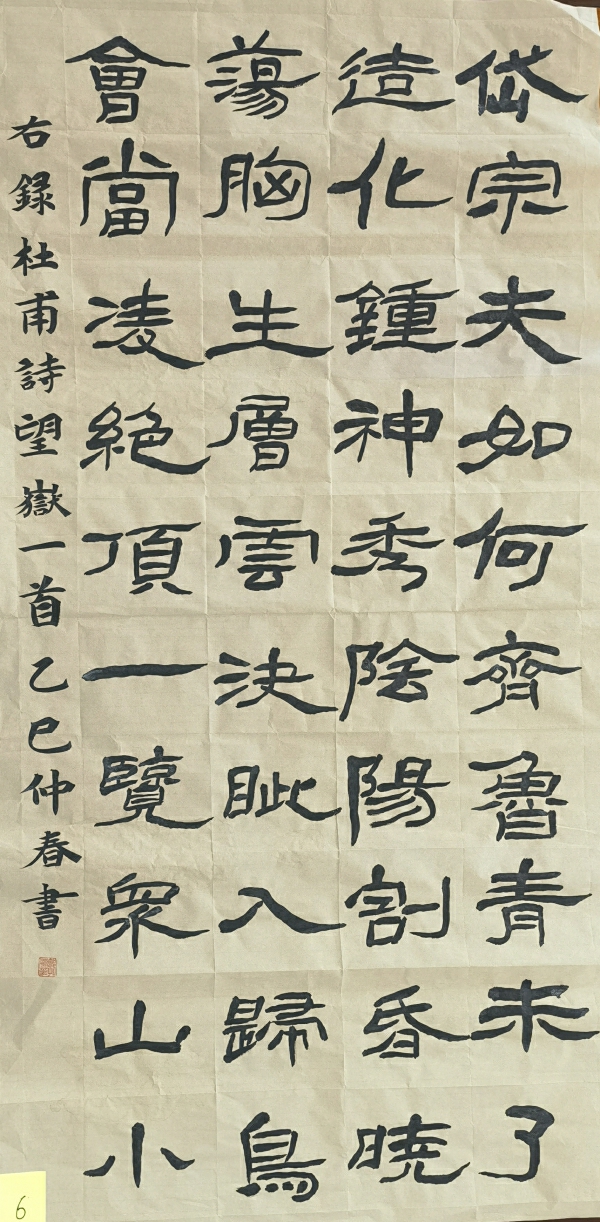 岱宗夫如何齊魯青未了
造化鍾神秀陰陽割昏曉
蕩胸生層雲決眦入歸鳥
會當凌絕頂一覽衆山小
右録杜甫詩望嶽一首乙巳仲春書
6